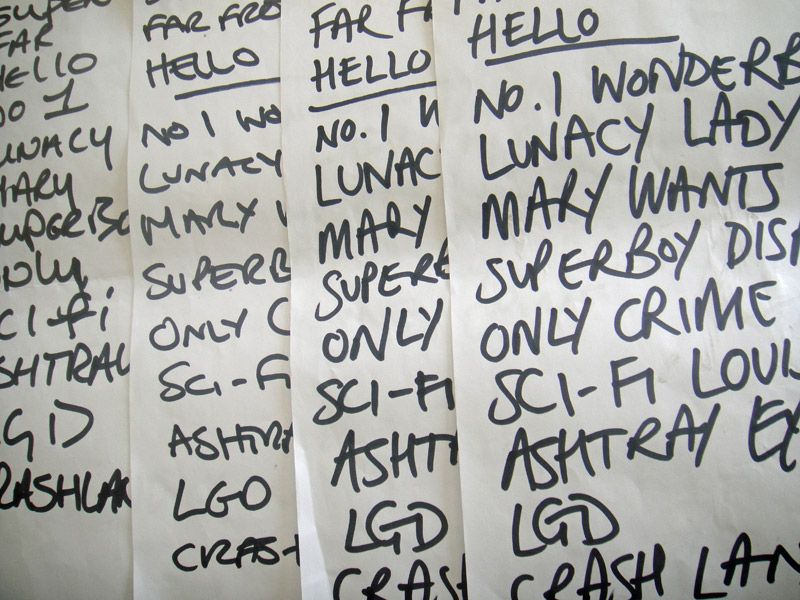 SUPER
FAR
HELLO
NO 1
UNACY
MARY
SUPERBO
ONLY
CI-Fi
SHTRAY
LGD
RASHLAN
FAR FRO
HELLO
NO 1 WO
LUNACY
MARY
SUPERB
ONLY C
SCI-FI
ASHTRA
LGO
CRASH
FAR FA
HELLO
NO. 1 W
LUNAC
MARY
SUPERB
ONLY
SCI-FI
ASHT
LGD
CRASH
HELLO
NO. 1 WONDERB
LUNACY LADY
MARY WANTS
SUPERBOY DISA
ONLY CRIME
SCI-FI LOUI
ASHTRAY EY
LGD
CRASH LAN